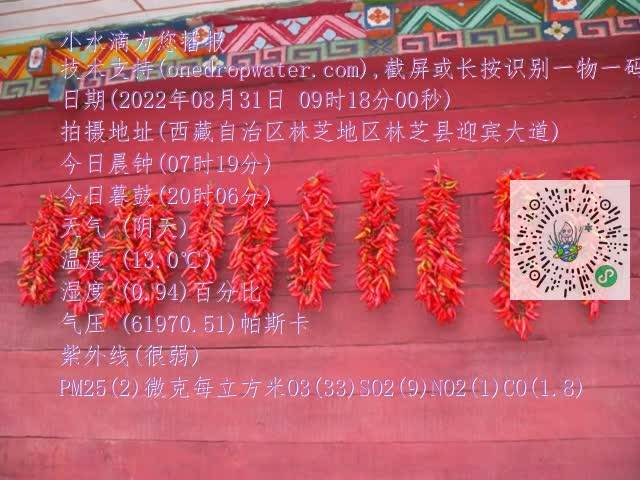 小水滴为您播报
技术支持(onedropwater.com),截屏或长按识别一物一码
日期(2022年08月31日 09时18分00秒)
拍摄地址(西藏自治区林芝地区林芝县迎宾大道)
今日晨钟(07时19分)
今日暮鼓(20时06分)
天气 (阴天)
温度 (13.0℃)
湿度 (0.94)百分比
气压 (61970.51)帕斯卡
紫外线(很弱)
PM25(2)微克每立方米O3(33)SO2(9)NO2(1)CO(1.8)